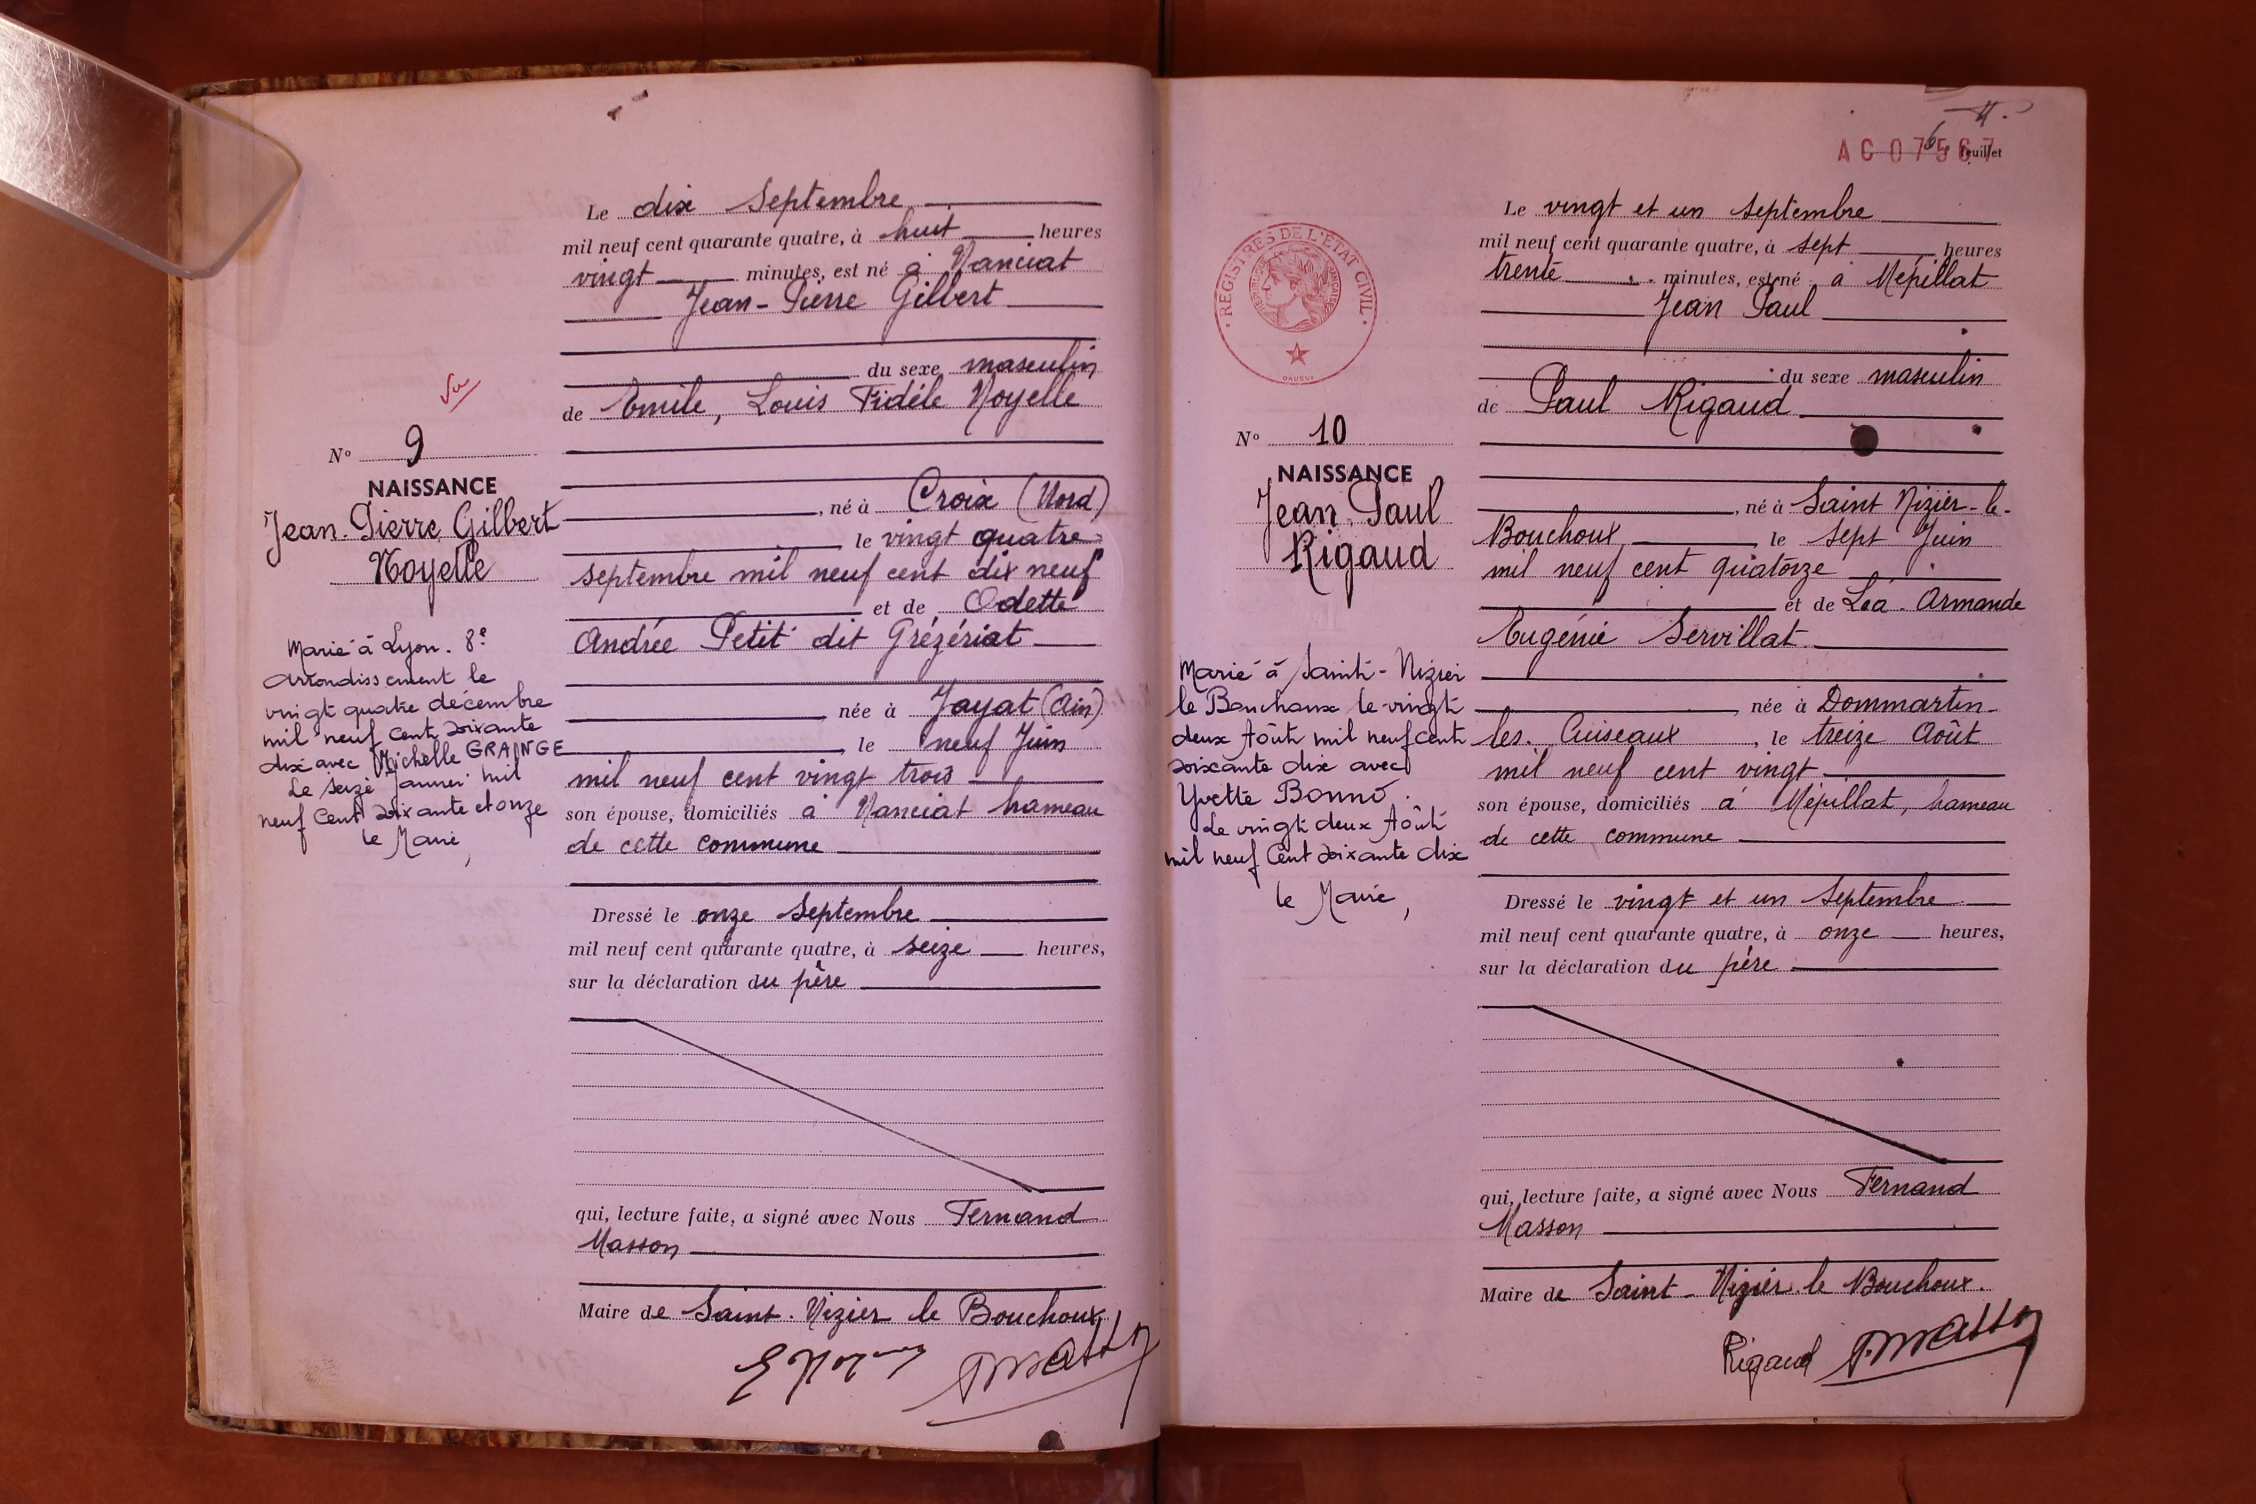 Vu
N° 9
NAISSANCE
Jean-Pierre Gilbert
Noyelle
Marié à Lyon. 8e
arrondissement le
vingt quatre décembre
mil neuf cent soixante
dix avec Michelle GRANGE
Le seize Janvier mil
neuf cent soixante et onze
le Maire,
Le dix Septembre
mil neuf cent quarante quatre, à huit heures
vingt minutes, est né à Nanciat
Jean-Pierre Gilbert
du sexe masculin
de Emile, Louis Fidèle Noyelle
, né à Croix (Nord)
le vingt quatre
septembre mil neuf cent dix neuf
et de Odette
Andrée Petit dit Grézériat
née à Jayat (Ain)
, le neuf Juin
mil neuf cent vingt trois
son épouse, domiciliés à Nanciat hameau
de cette commune
Dressé le onze Septembre
mil neuf cent quarante quatre, à seize heures,
sur la déclaration du père
qui, lecture faite, a signé avec Nous Fernand
Masson
Maire de Saint-Nizier le Bouchoux
F. Masson
6e feuillet
AC 07567
REGISTRES DE L'ÉTAT CIVIL
N° 10
NAISSANCE
Jean Paul
Rigaud
Marié à Saint-Nizier
le Bouchoux le vingt
deux Août mil neuf cent
soixante dix avec
Yvette Bonno.
Le vingt deux Août
mil neuf cent soixante dix
le Maire,
Le vingt et un septembre
mil neuf cent quarante quatre, à sept heures
trente minutes, est né à Mépillat
Jean Paul
du sexe masculin
de Paul Rigaud
, né à Saint Nizier-le-
Bouchoux, le sept Juin
mil neuf cent quatorze
et de Léa-Armande
Eugénie Servillat
née à Dommartin-
les-Cuiseaux, le treize Août
mil neuf cent vingt
son épouse, domiciliés à Mépillat, hameau
de cette commune
Dressé le vingt et un Septembre
mil neuf cent quarante quatre, à onze heures,
sur la déclaration du père
qui, lecture faite, a signé avec Nous Fernand
Masson
Maire de Saint-Nizier-le Bouchoux.
Rigaud F. Masson